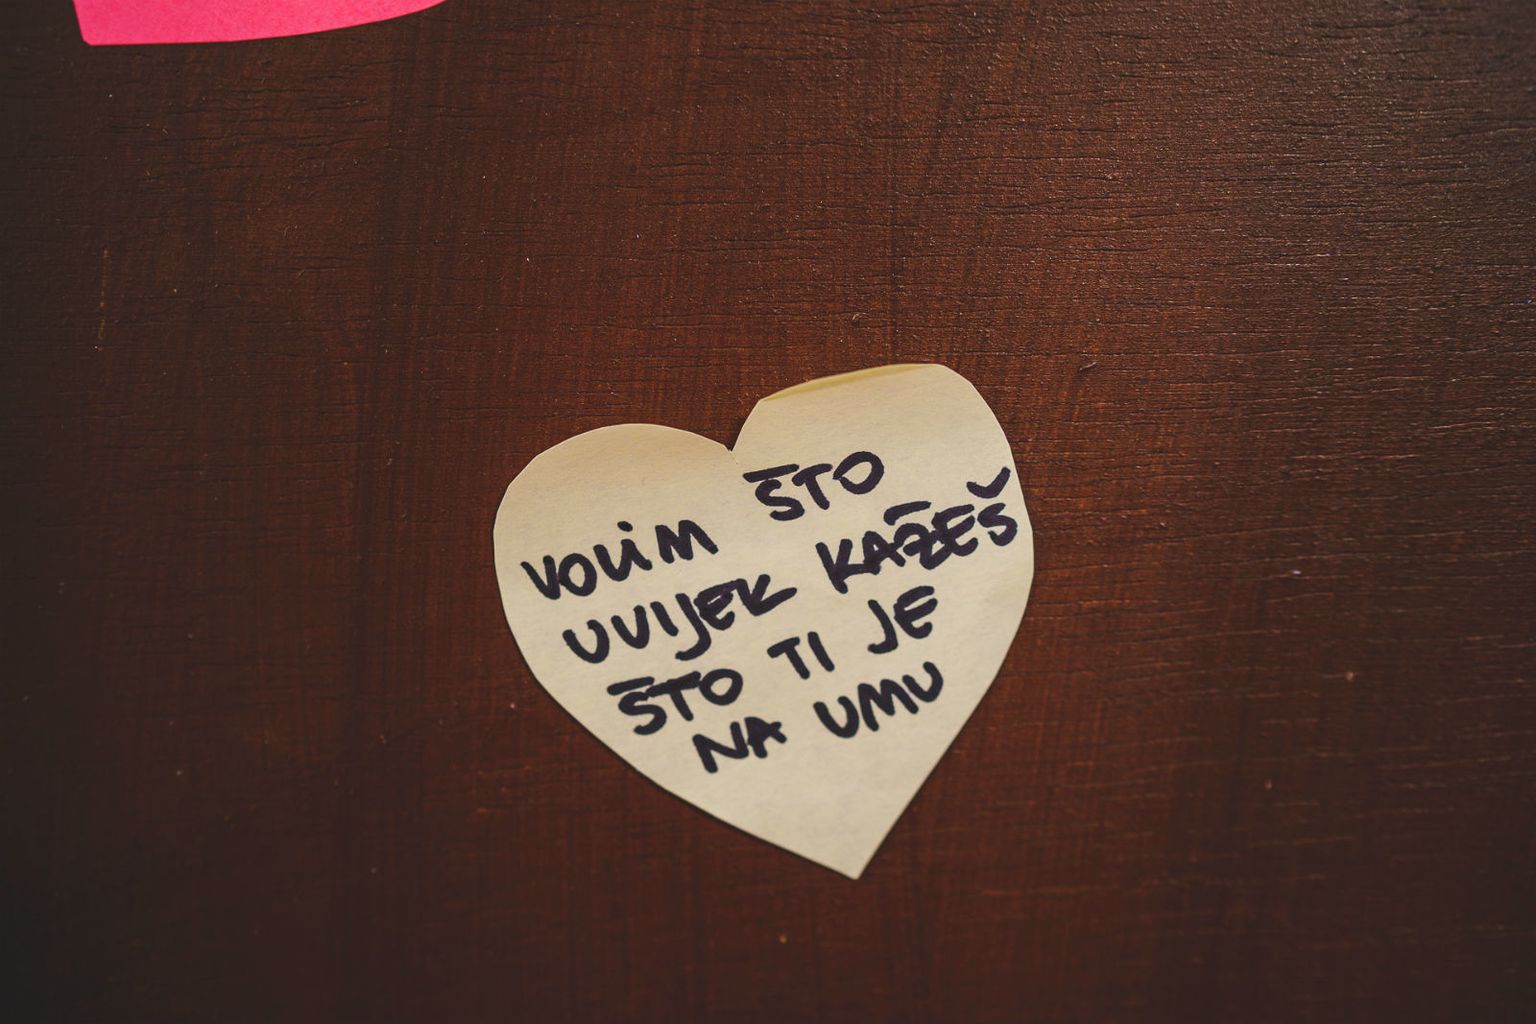 VOLIM ŠTO
UVIJEK KAŽEŠ
ŠTO TI JE
NA UMU